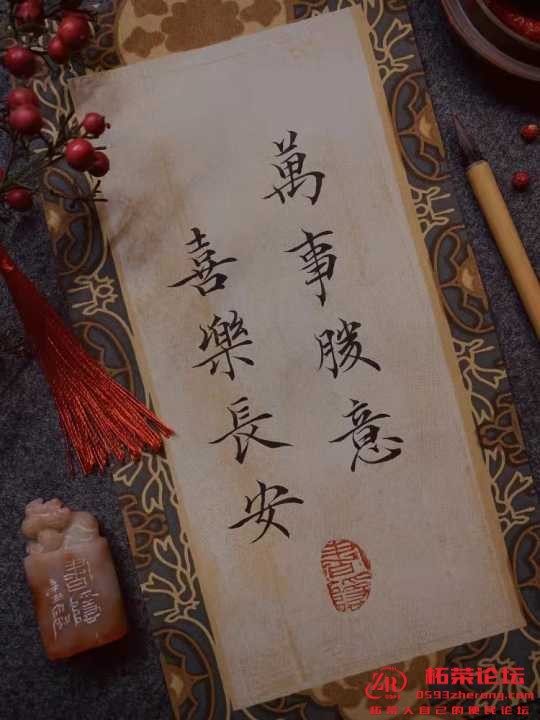 萬事勝意
喜樂長安
柘荣论坛
0593zherong.com
柘荣人自己的便民论坛